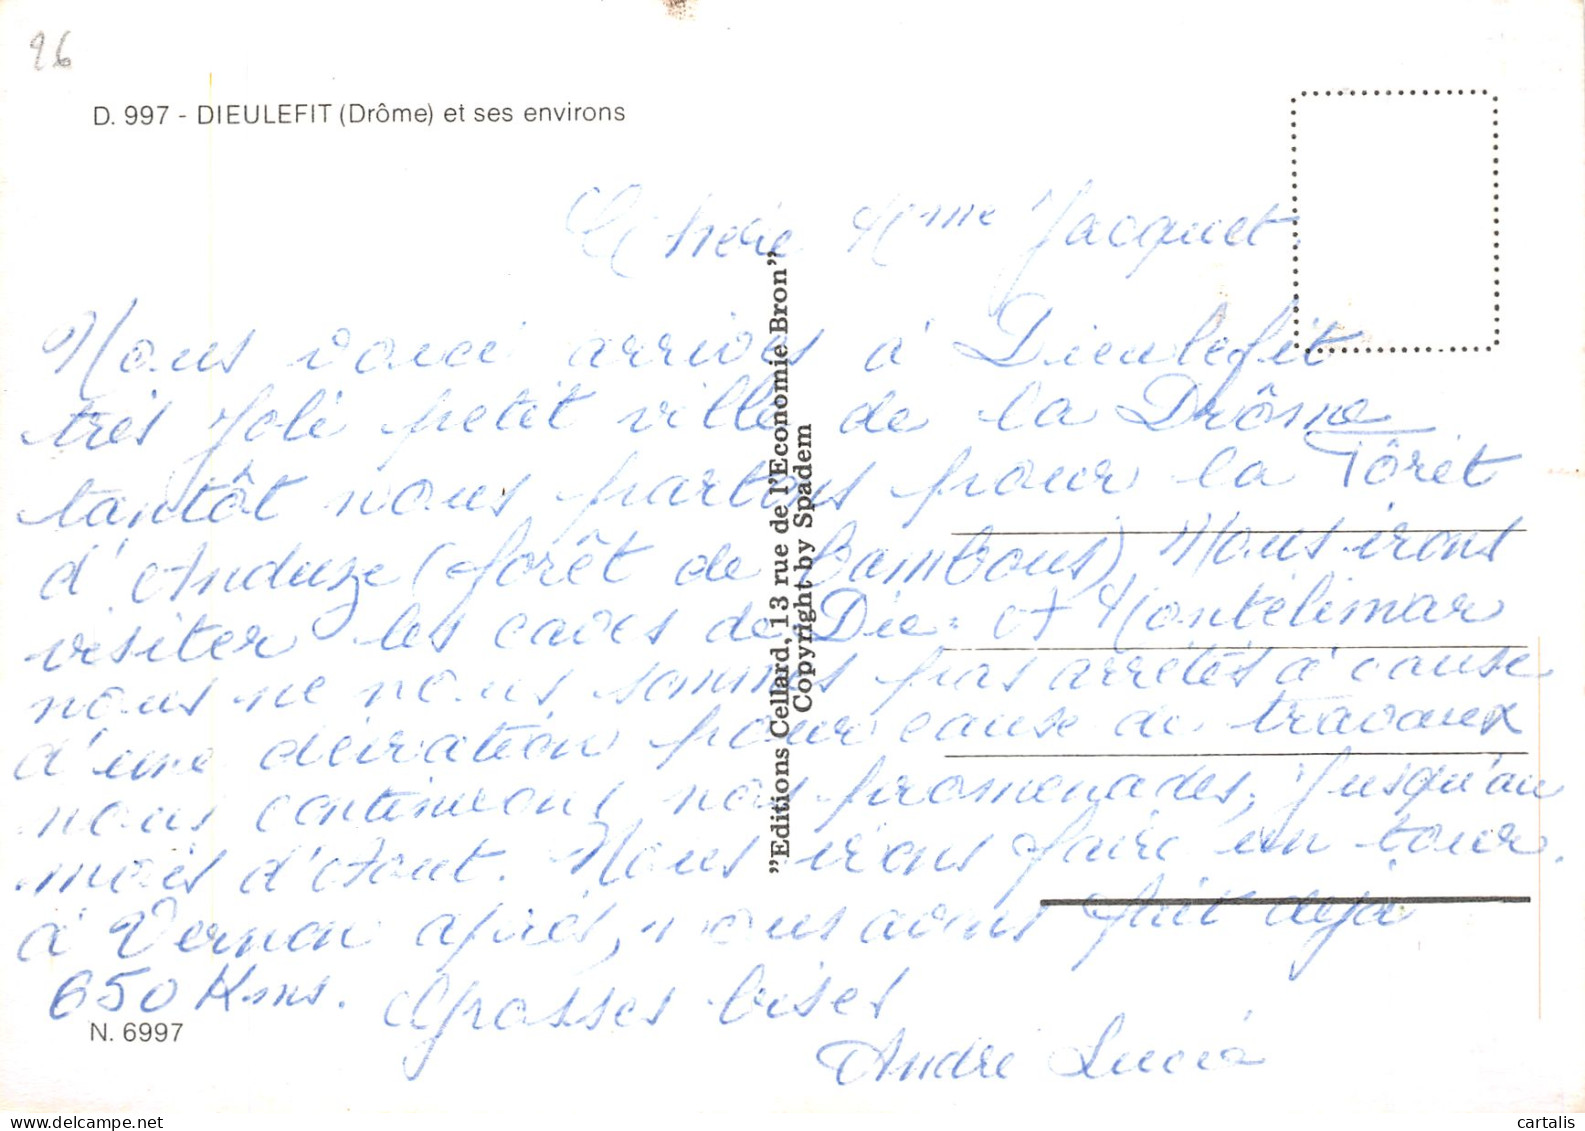 26
D. 997 - DIEULEFIT (Drôme) et ses environs
Chérie Mme Jacquet
Nous voici arrivés à Dieulefit
très Joli petit ville de la Drôme
tantôt nous partons pour la Fôrêt
d'Anduze (forêt de Bambous) Nous irons
visiter les caves de Die. et Montélimar
nous ne nous sommes pas arrêtés à cause
d'une déiration pour cause de travaux
nous continuons nos promenades, Jusqu'au
mois d'Aout. Nous irons faire un tour.
à Vernon après, nous avons fait déjà
650 Kms. Grosses bises
André Lucie
N. 6997
"Editions Cellard, 13 rue de l'Economie Bron"
Copyright by Spadem
cartalis